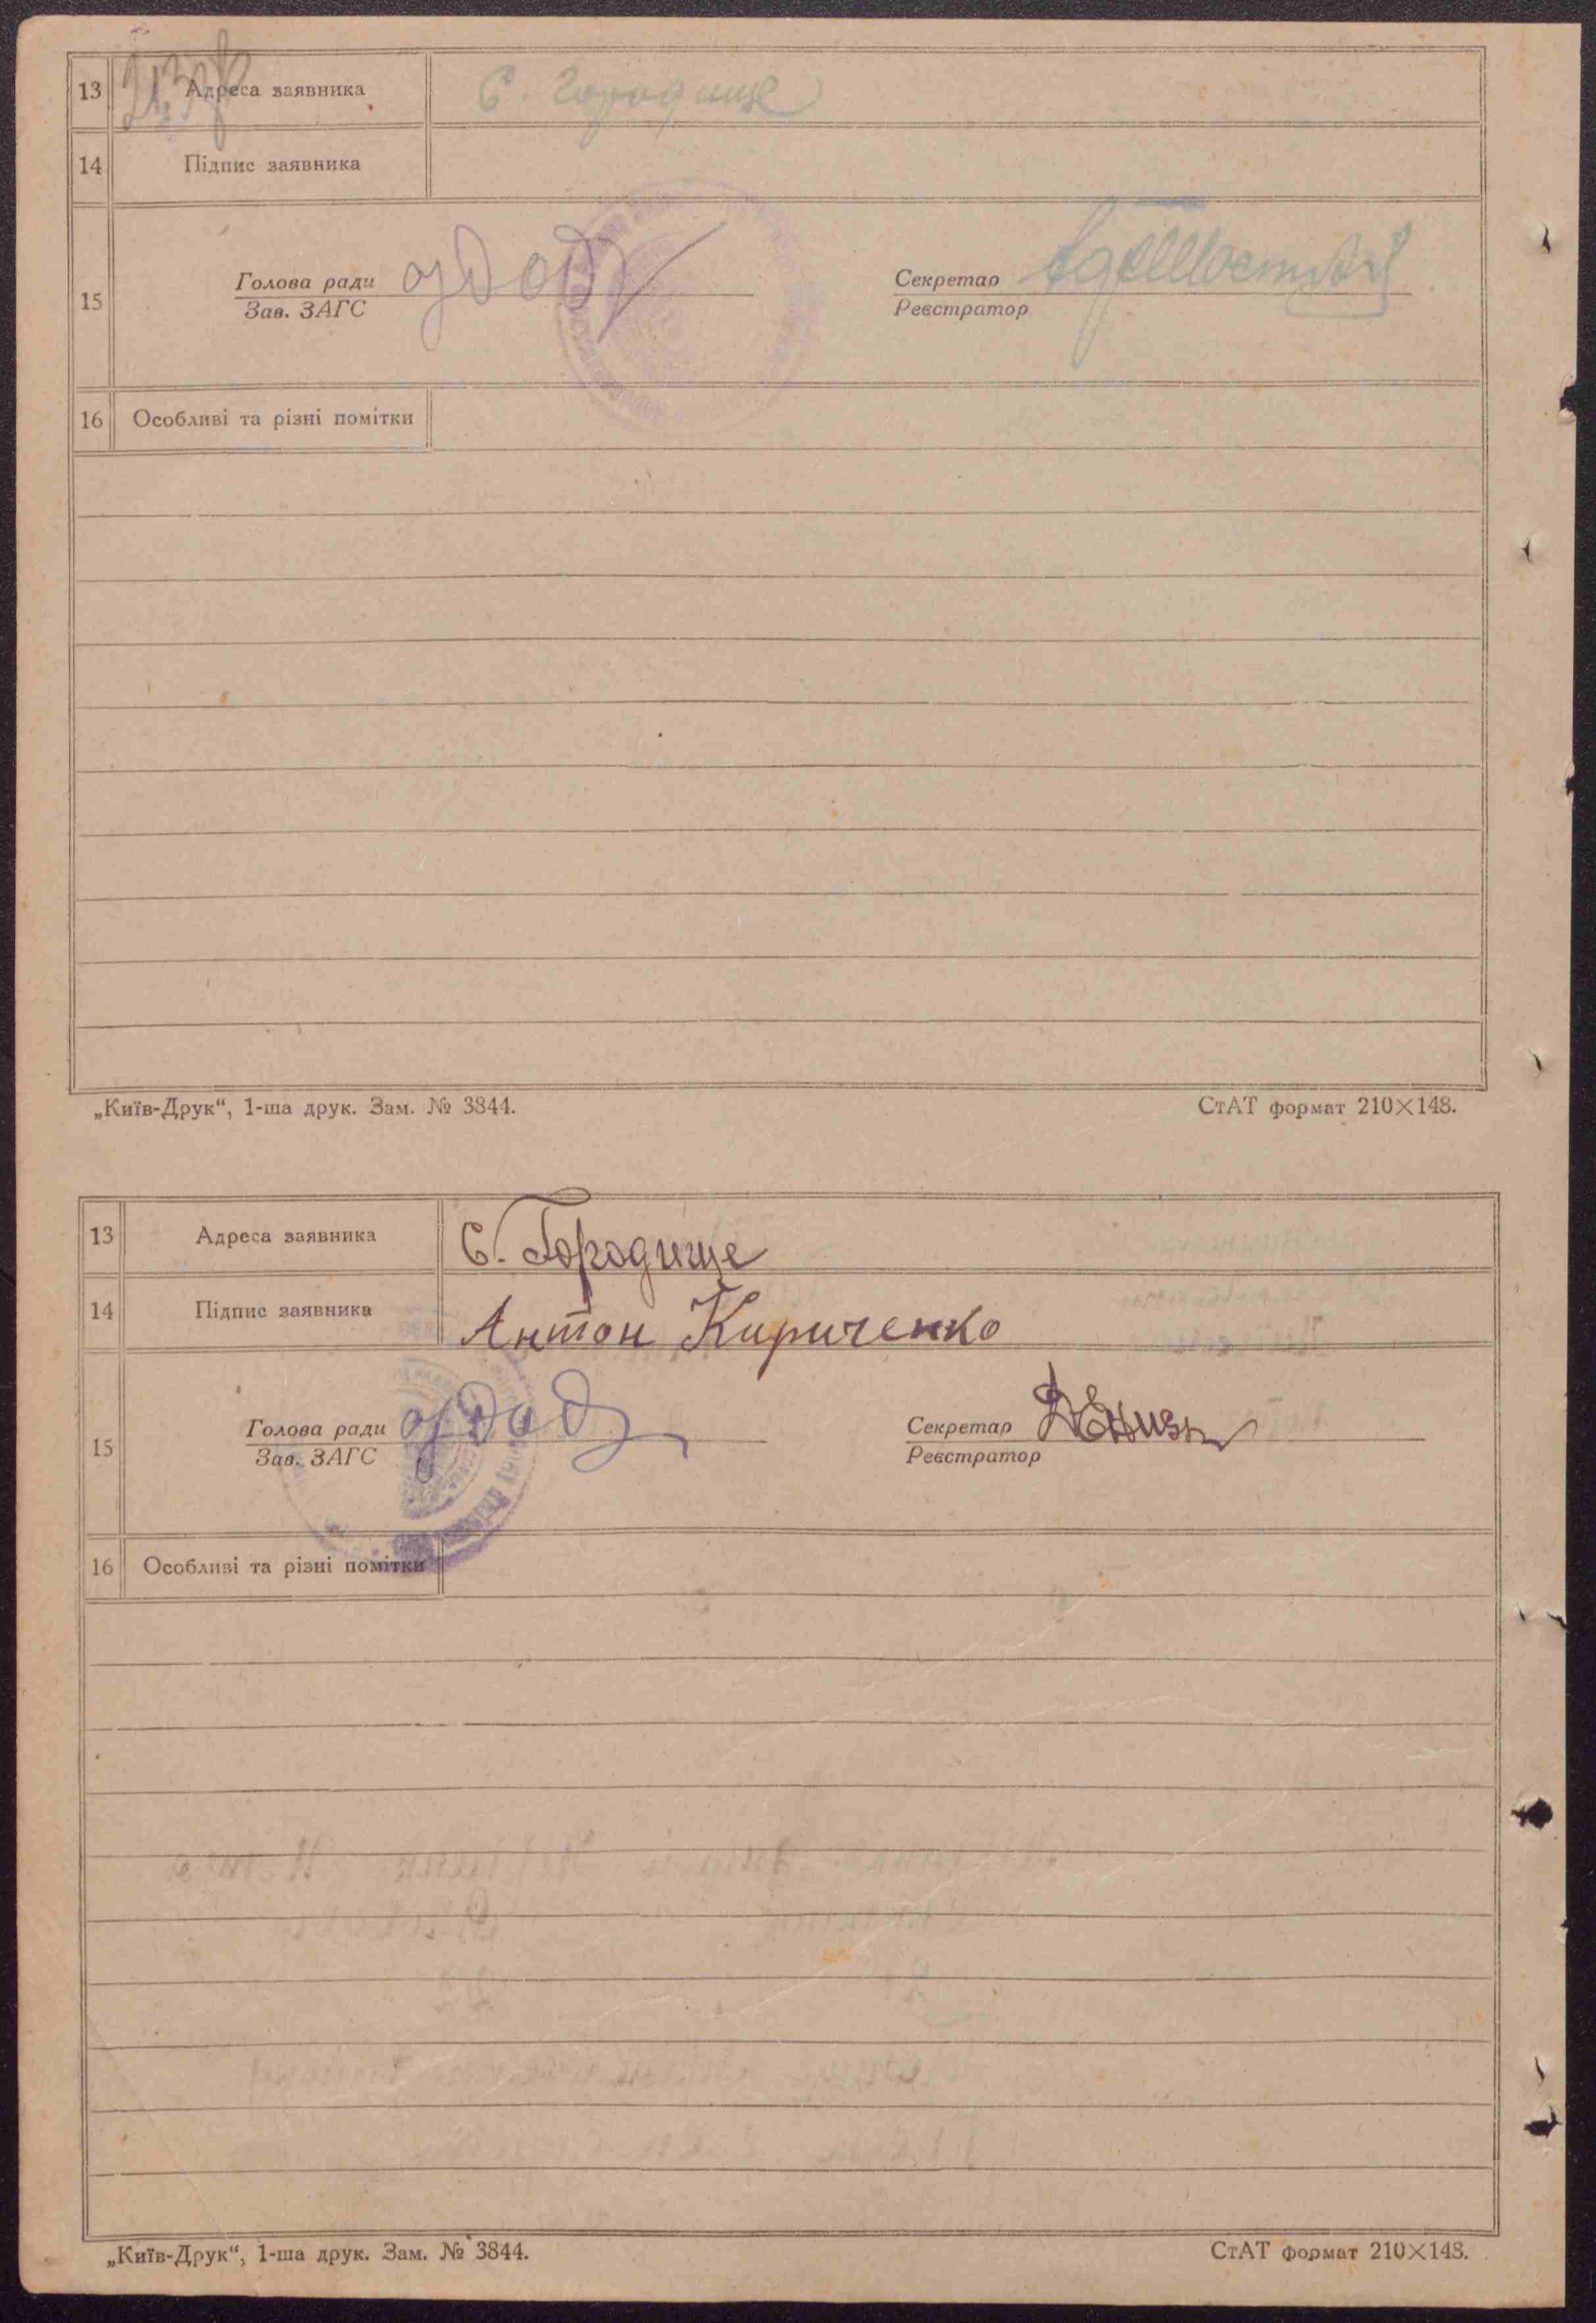 13 Адреса заявника С. Городище
14 Підпис заявника
15 Голова ради
Зав. ЗАГС
Секретар
Реєстратор
16 Особливі та різні помітки
„Київ-Друк“, 1-ша друк. Зам. № 3844. СтАТ формат 210×148.
13 Адреса заявника С. Городище
14 Підпис заявника Антон Кириченко
15 Голова ради
Зав. ЗАГС
Секретар
Реєстратор
16 Особливі та різні помітки
„Київ-Друк“, 1-ша друк. Зам. № 3844. СтАТ формат 210×148.